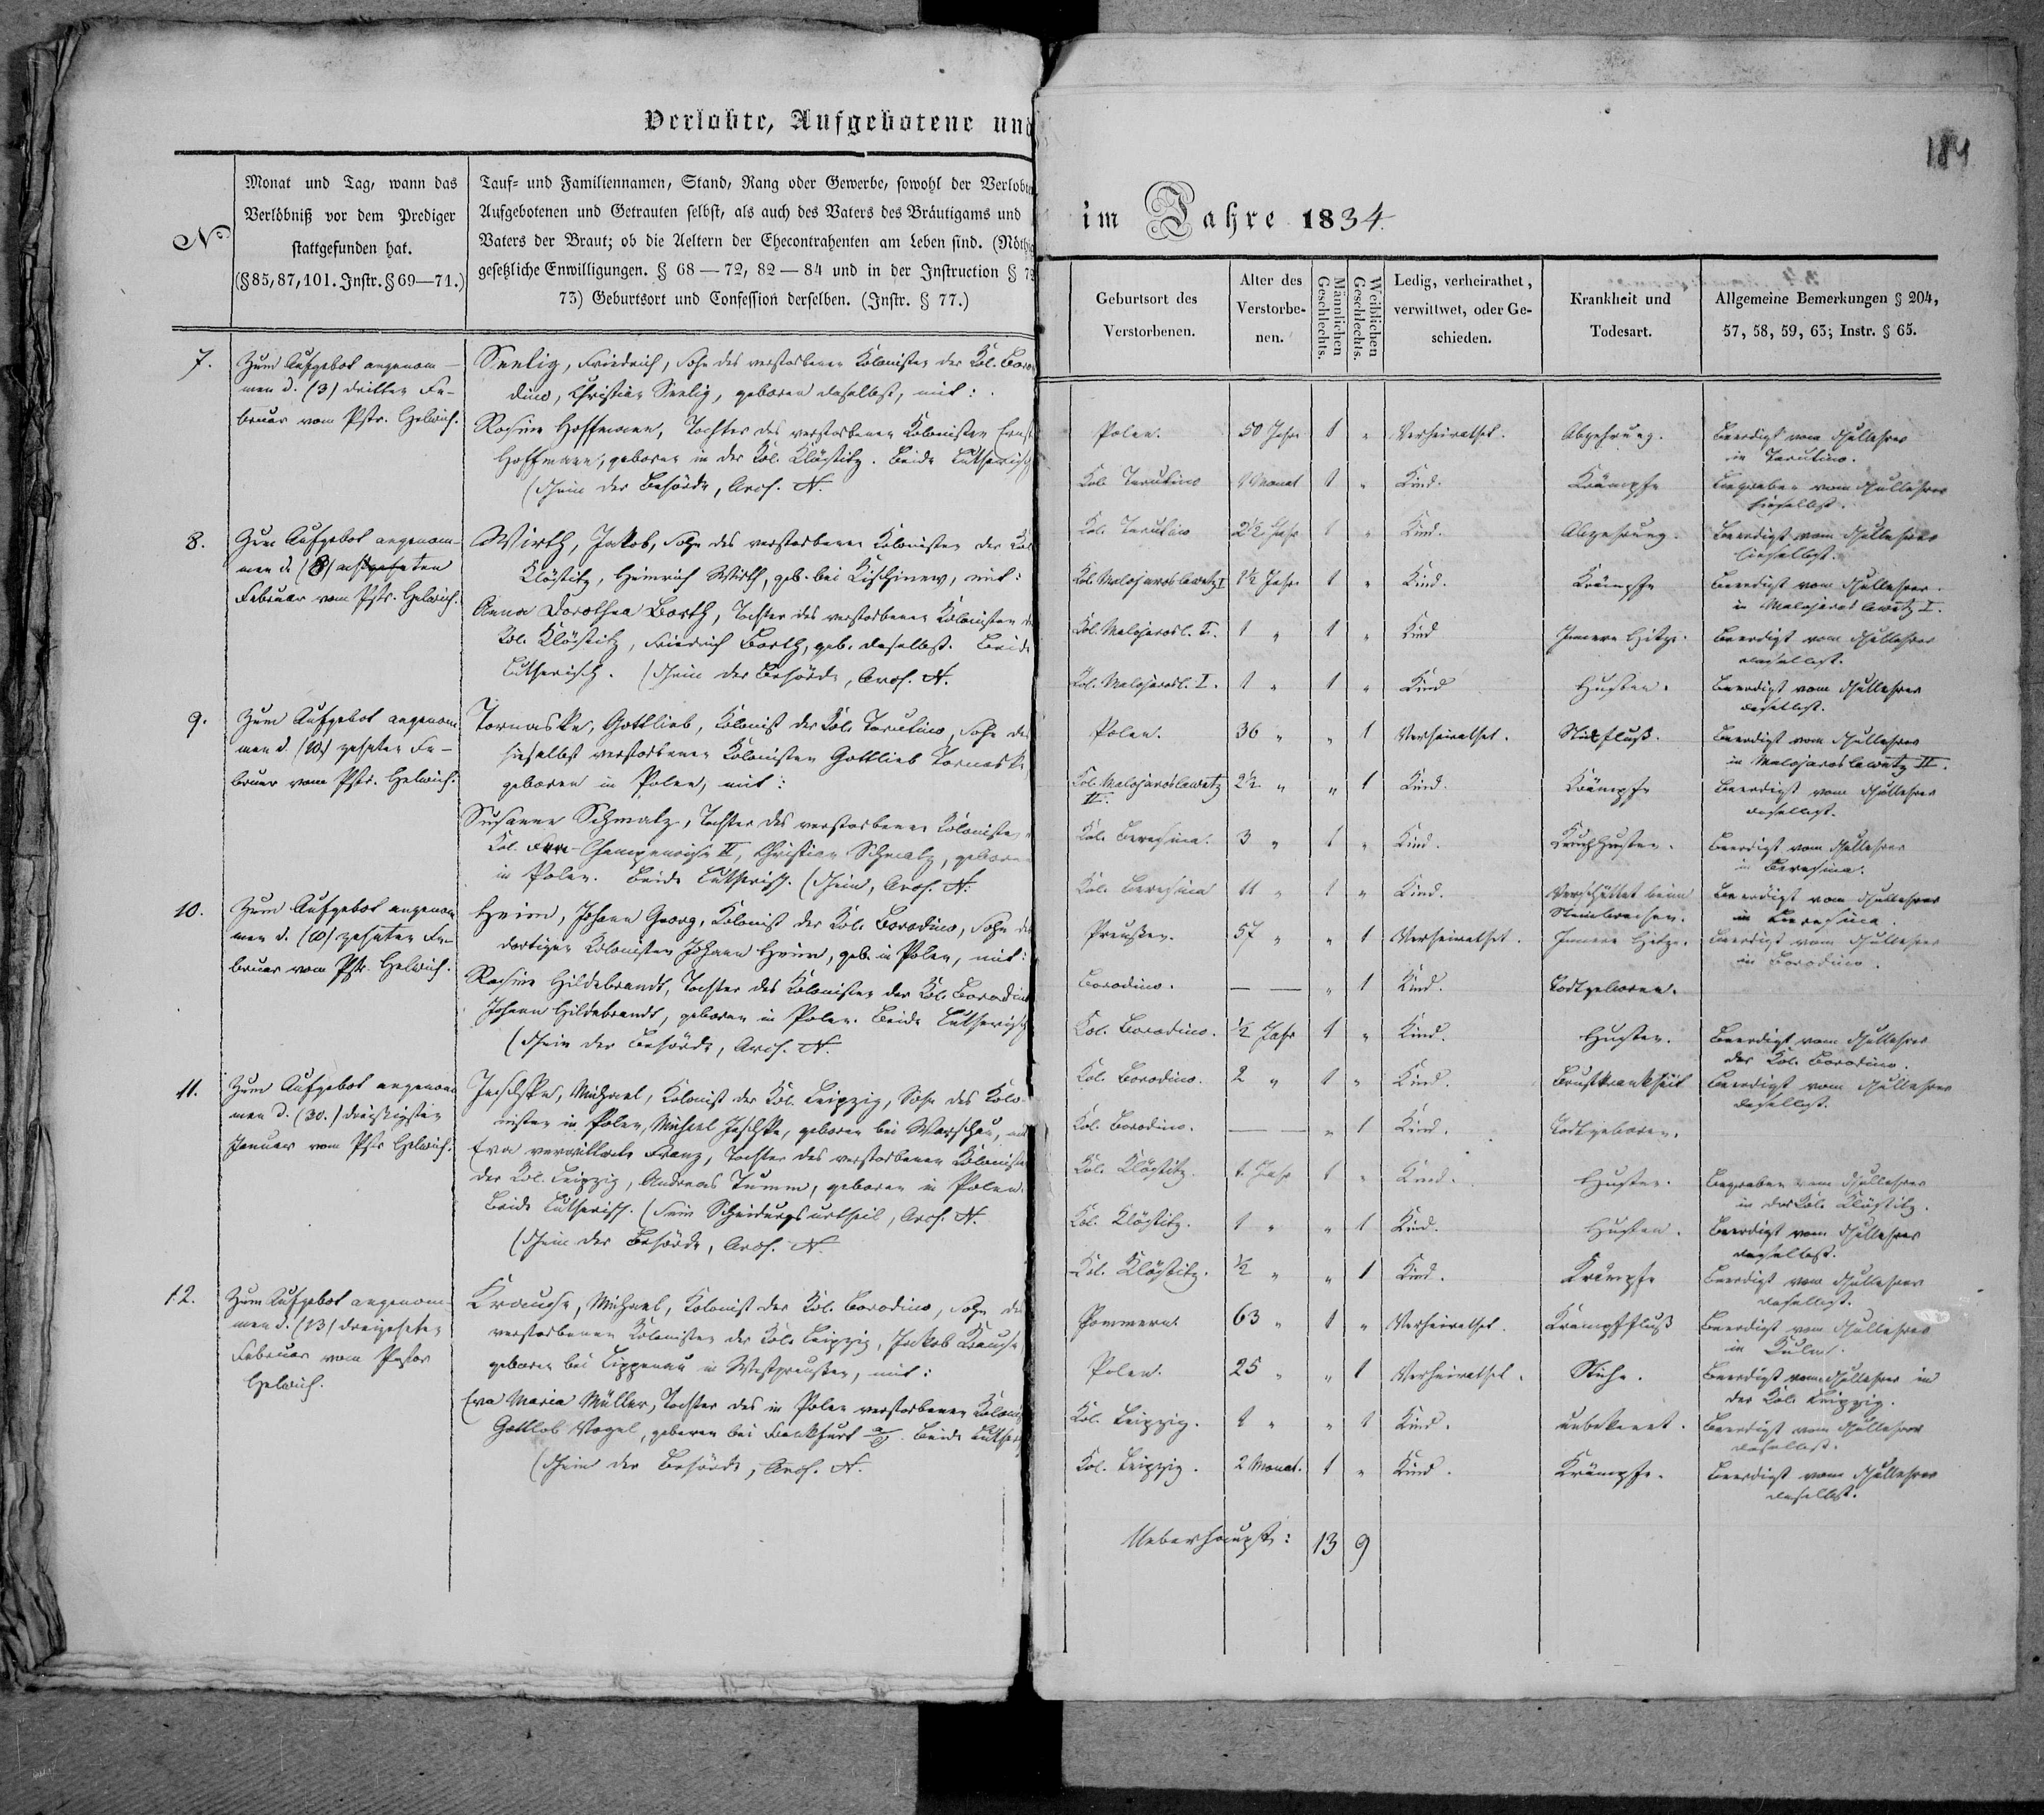 Verlobte, Aufgebotene und
No
Monat und Tag, wann das
Verlöbniß vor dem Prediger
stattgefunden hat.
(§ 85, 87, 101. Instr. § 69—71.)
Tauf- und Familiennamen, Stand, Rang oder Gewerbe, sowohl der Verlobten
Aufgebotenen und Getrauten selbst, als auch des Vaters des Bräutigams und
Vaters der Braut; ob die Aeltern der Ehecontrahenten am Leben sind. (Nöthig
gesetzliche Enwilligungen. § 68 — 72, 82 — 84 und in der Instruction § 72
73) Geburtsort und Confession derselben. (Instr. § 77.)
7.
Zum Aufgebot angenom-
men d. (3) dritten Fe-
bruar vom Pstr. Helwich.
Seelig, Friedrich, Sohn des verstorbenen Kolonisten der Kol. Boro
dino, Christian Seelig, geboren daselbst, mit:
Rosine Hoffmann, Tochter des verstorbenen Kolonisten Ernst
Hoffmann, geboren in der Kol. Klöstitz. Beide Lutherisch
(Schein der Behörde, Arch. N.
8.
Zum Aufgebot angenom
men d. (8) achten
Februar vom Pstr. Helwich.
Wirth, Jakob, Sohn des verstorbenen Kolonisten der Kol
Klöstitz, Heinrich Wirth, geb. bei Kischinew, mit:
Anna Dorothea Barth, Tochter des verstorbenen Kolonisten
Kol. Klöstitz, Friedrich Barth, geb. daselbst. Beide
Lutherisch. (Schein der Behörde, Arch. N.
9.
Zum Aufgebot angenom
men d. (10) zehnten Fe-
bruar vom Pstr. Helwich.
Tornaske, Gottlieb, Kolonist der Kol. Tarutino, Sohn des
hieselbst verstorbenen Kolonisten Gottlieb Tornaske
geboren in Polen, mit:
Susanne Schmalz, Tochter des verstorbenen Koloniste
Kol. Fere-Champenoise II, Christian Schmalz, geboren
in Polen. Beide Lutherisch. (Schein, Arch. N.
10.
Zum Aufgebot angenom
men d. (10) zehnten Fe-
bruar vom Pstr. Helwich.
Heim, Johann Georg, Kolonist der Kol. Borodino, Sohn des
dortigen Kolonisten Johann Heim, geb. in Polen, mit:
Rosine Hildebrandt, Tochter des Kolonisten der Kol. Borodino
Johann Hildebrandt, geboren in Polen. Beide Lutherisch
(Schein der Behörde, Arch. N.
11.
Zum Aufgebot angenom
men d. (30.) dreißigsten
Januar vom Pstr Helwich.
Jeschke, Michael, Kolonist der Kol. Leipzig, Sohn des Kolo-
nisten in Polen, Michael Jeschke, geboren bei Warschau,
Eva verwittwete Franz, Tochter des verstorbenen Koloniste
der Kol. Leipzig, Andreas Tumm, geboren in Polen.
Beide Lutherisch. (Sein Scheidungsurtheil, Arch. N.
(Schein der Behörde, Arch. N.
12.
Zum Aufgebot angenom
men d. (13) dreizehnten
Februar vom Pastor
Helwich.
Krause, Michael, Kolonist der Kol. Borodino, Sohn des
verstorbenen Kolonisten der Kol. Leipzig, Jakob Krause
geboren bei Lippenau in Westpreußen, mit:
Eva Maria Müller, Tochter des in Polen verstorbenen Kolonis
Gottlob Vogel, geboren bei Frankfurt a/O. Beide Luther
(Schein der Behörde, Arch. N.
184
im Jahre 1834.
Geburtsort des
Verstorbenen.
Alter des
Verstorbe-
nen.
Männlichen
Geschlechts.
Weiblichen
Geschlechts.
Ledig, verheirathet,
verwittwet, oder Ge-
schieden.
Krankheit und
Todesart.
Allgemeine Bemerkungen § 204,
57, 58, 59, 63; Instr. § 65.
Polen. 50 Jahre 1 " Verheirathet. Abzehrung. Beerdigt vom Schullehrer
in Tarutino.
Kol. Tarutino 1 Monat 1 " Kind. Krämpfe Begraben vom Schullehrer
hieselbst.
Kol. Tarutino 2½ Jahr 1 " Kind. Abzehrung. Beerdigt vom Schullehrer
hieselbst.
Kol. Malojaroslawetz I 1½ Jahr 1 " Kind. Krämpfe Beerdigt vom Schullehrer
in Malojaroslawetz I.
Kol. Malojarosl. I. 1 " 1 " Kind Innere Hitze. Beerdigt vom Schullehrer
daselbst.
Kol. Malojarosl. I. 1 " 1 " Kind Husten. Beerdigt vom Schullehrer
daselbst.
Polen. 36 " " 1 Verheirathet. Stickfluß. Beerdigt vom Schullehrer
in Malojaroslawetz II.
Kol. Malojaroslawetz 2½ " " 1 Kind. Krämpfe Beerdigt vom Schullehrer
II. daselbst.
Kol. Beresina. 3 " 1 " Kind. Keuchhusten. Beerdigt vom Schullehrer
in Beresina.
Kol. Beresina 11 " 1 " Kind. Verschüttet beim Beerdigt vom Schullehrer
Steinbrechen. in Beresina.
Preußen. 57 " " 1 Verheirathet. Innere Hitze. Beerdigt vom Schullehrer
in Borodino.
Borodino. — — " 1 Kind. Todtgeboren.
Kol. Borodino. ½ Jahr 1 " Kind. Husten. Beerdigt vom Schullehrer
der Kol. Borodino.
Kol. Borodino. 2 " 1 " Kind. Brustkrankheit Beerdigt vom Schullehrer
daselbst.
Kol. Borodino. — — " 1 Kind. Todtgeboren.
Kol. Klöstitz. 1 Jahr 1 " Kind. Husten. Begraben vom Schullehrer
in der Kol. Klöstitz.
Kol. Klöstitz. 1 " " 1 Kind. Husten. Beerdigt vom Schullehrer
daselbst.
Kol. Klöstitz. ½ " " 1 Kind. Krämpfe Beerdigt vom Schullehrer
daselbst.
Pommern. 63 " 1 " Verheirathet. Krampffluß Beerdigt vom Schullehrer
in Kulm.
Polen. 25 " " 1 Verheirathet. Beerdigt vom Schullehrer in
der Kol. Leipzig.
Kol. Leipzig. 1 " " 1 Kind. unbekannt. Beerdigt vom Schullehrer
daselbst.
Kol. Leipzig. 2 Monat. 1 " Kind. Krämpfe. Beerdigt vom Schullehrer
daselbst.
Ueberhaupt: 13 9